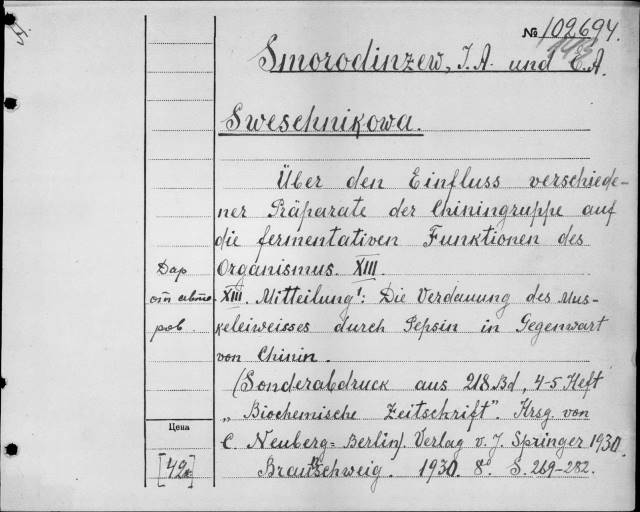 № 102694.
Smorodinzew, I.A. und E.A.
Sweschnikowa.
Über den Einfluss verschiede-
ner Präparate der Chiningruppe auf
die fermentativen Funktionen des
Organismus. XIII.
XIII. Mitteilung: Die Verdauung des Mus-
keleiweisses durch Pepsin in Gegenwart
von Chinin.
(Sonderabdruck aus 218 Bd, 4-5 Heft
„Biochemische Zeitschrift". Hrsg. von
C. Neuberg-Berlin). Verlag v. J. Springer 1930.
Braunschweig. 1930. 8° S. 269-282.
Дар
от авто-
ров.
Цена
[42к]